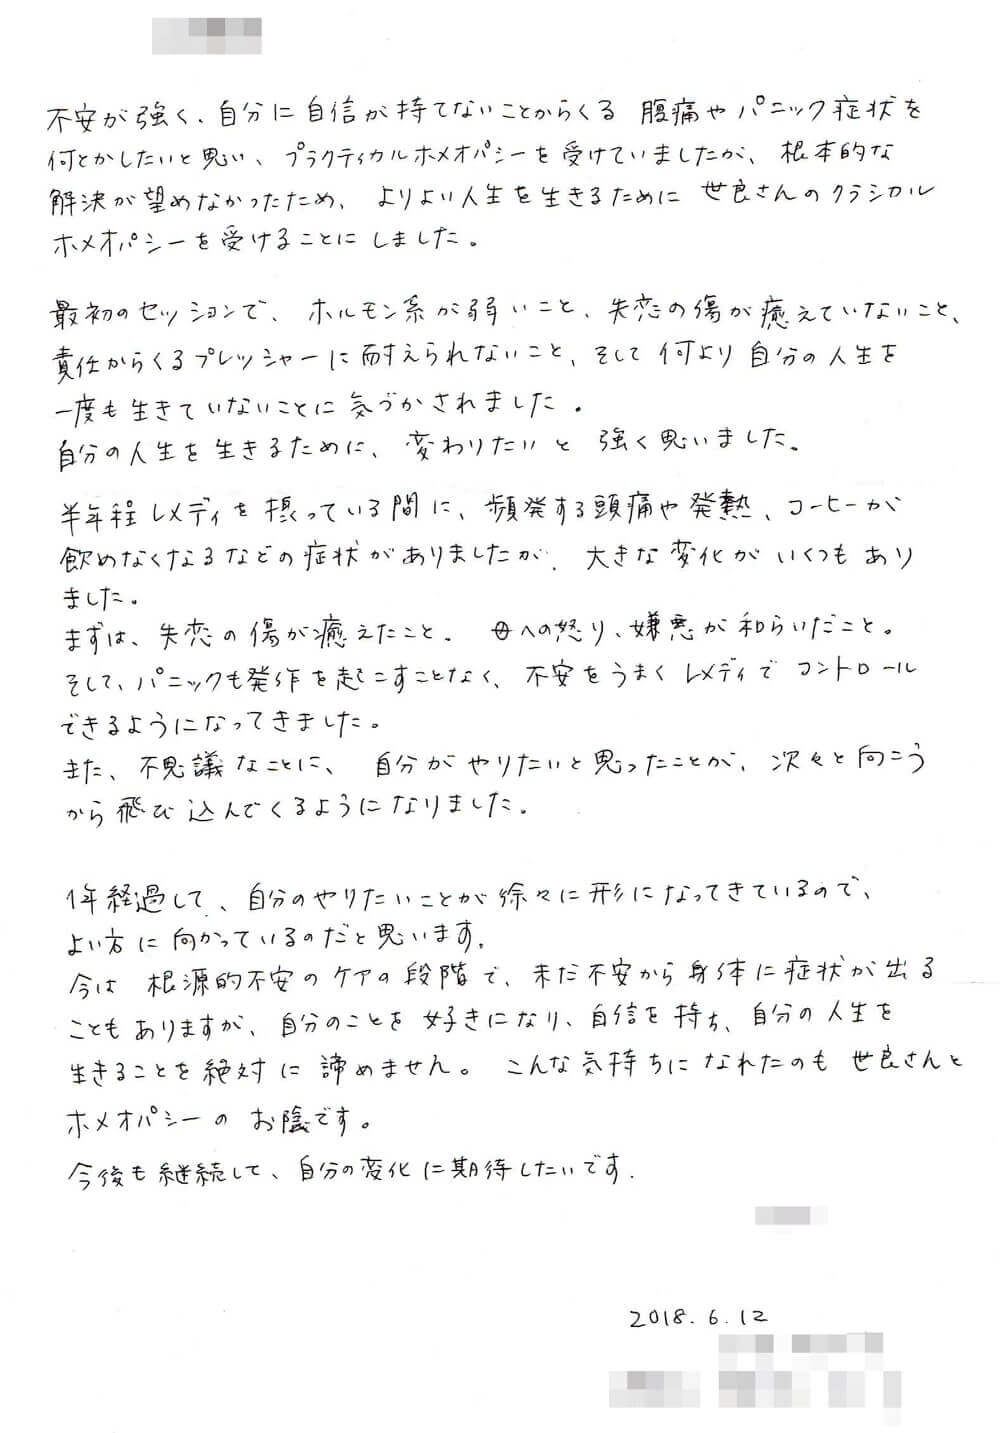 不安が強く、自分に自信が持てないことからくる 腹痛や パニック症状を
何とかしたいと思い、プラクティカルホメオパシーを受けていましたが、根本的な
解決が望めなかったため、よりよい人生を生きるために 世良さんのクラシカル
ホメオパシーを受けることにしました。
最初のセッションで、ホルモン系が弱いこと、失恋の傷が癒えていないこと、
責任からくるプレッシャーに耐えられないこと、そして何より自分の人生を
一度も生きていないことに気づかされました。
自分の人生を生きるために、変わりたいと 強く思いました。
半年程レメディを摂っている間に、頻発する頭痛や発熱、コーヒーが
飲めなくなるなどの症状がありましたが、大きな変化がいくつもあり
ました。
まずは、失恋の傷が癒えたこと。母への怒り、嫌悪が和らいだこと。
そして、パニックも発作を起こすことなく、不安をうまくレメディでコントロール
できるようになってきました。
また、不思議なことに、自分がやりたいと思ったことが、次々と向こう
から飛び込んでくるようになりました。
1年経過して、自分のやりたいことが徐々に形になってきているので、
よい方に向かっているのだと思います。
今は 根源的不安のケアの段階で、未だ不安から身体に症状が出る
こともありますが、自分のことを好きになり、自信を持ち、自分の人生を
生きることを絶対に諦めません。こんな気持ちになれたのも世良さんと
ホメオパシーの お陰です。
今後も継続して、自分の変化に期待したいです。
2018.6.12